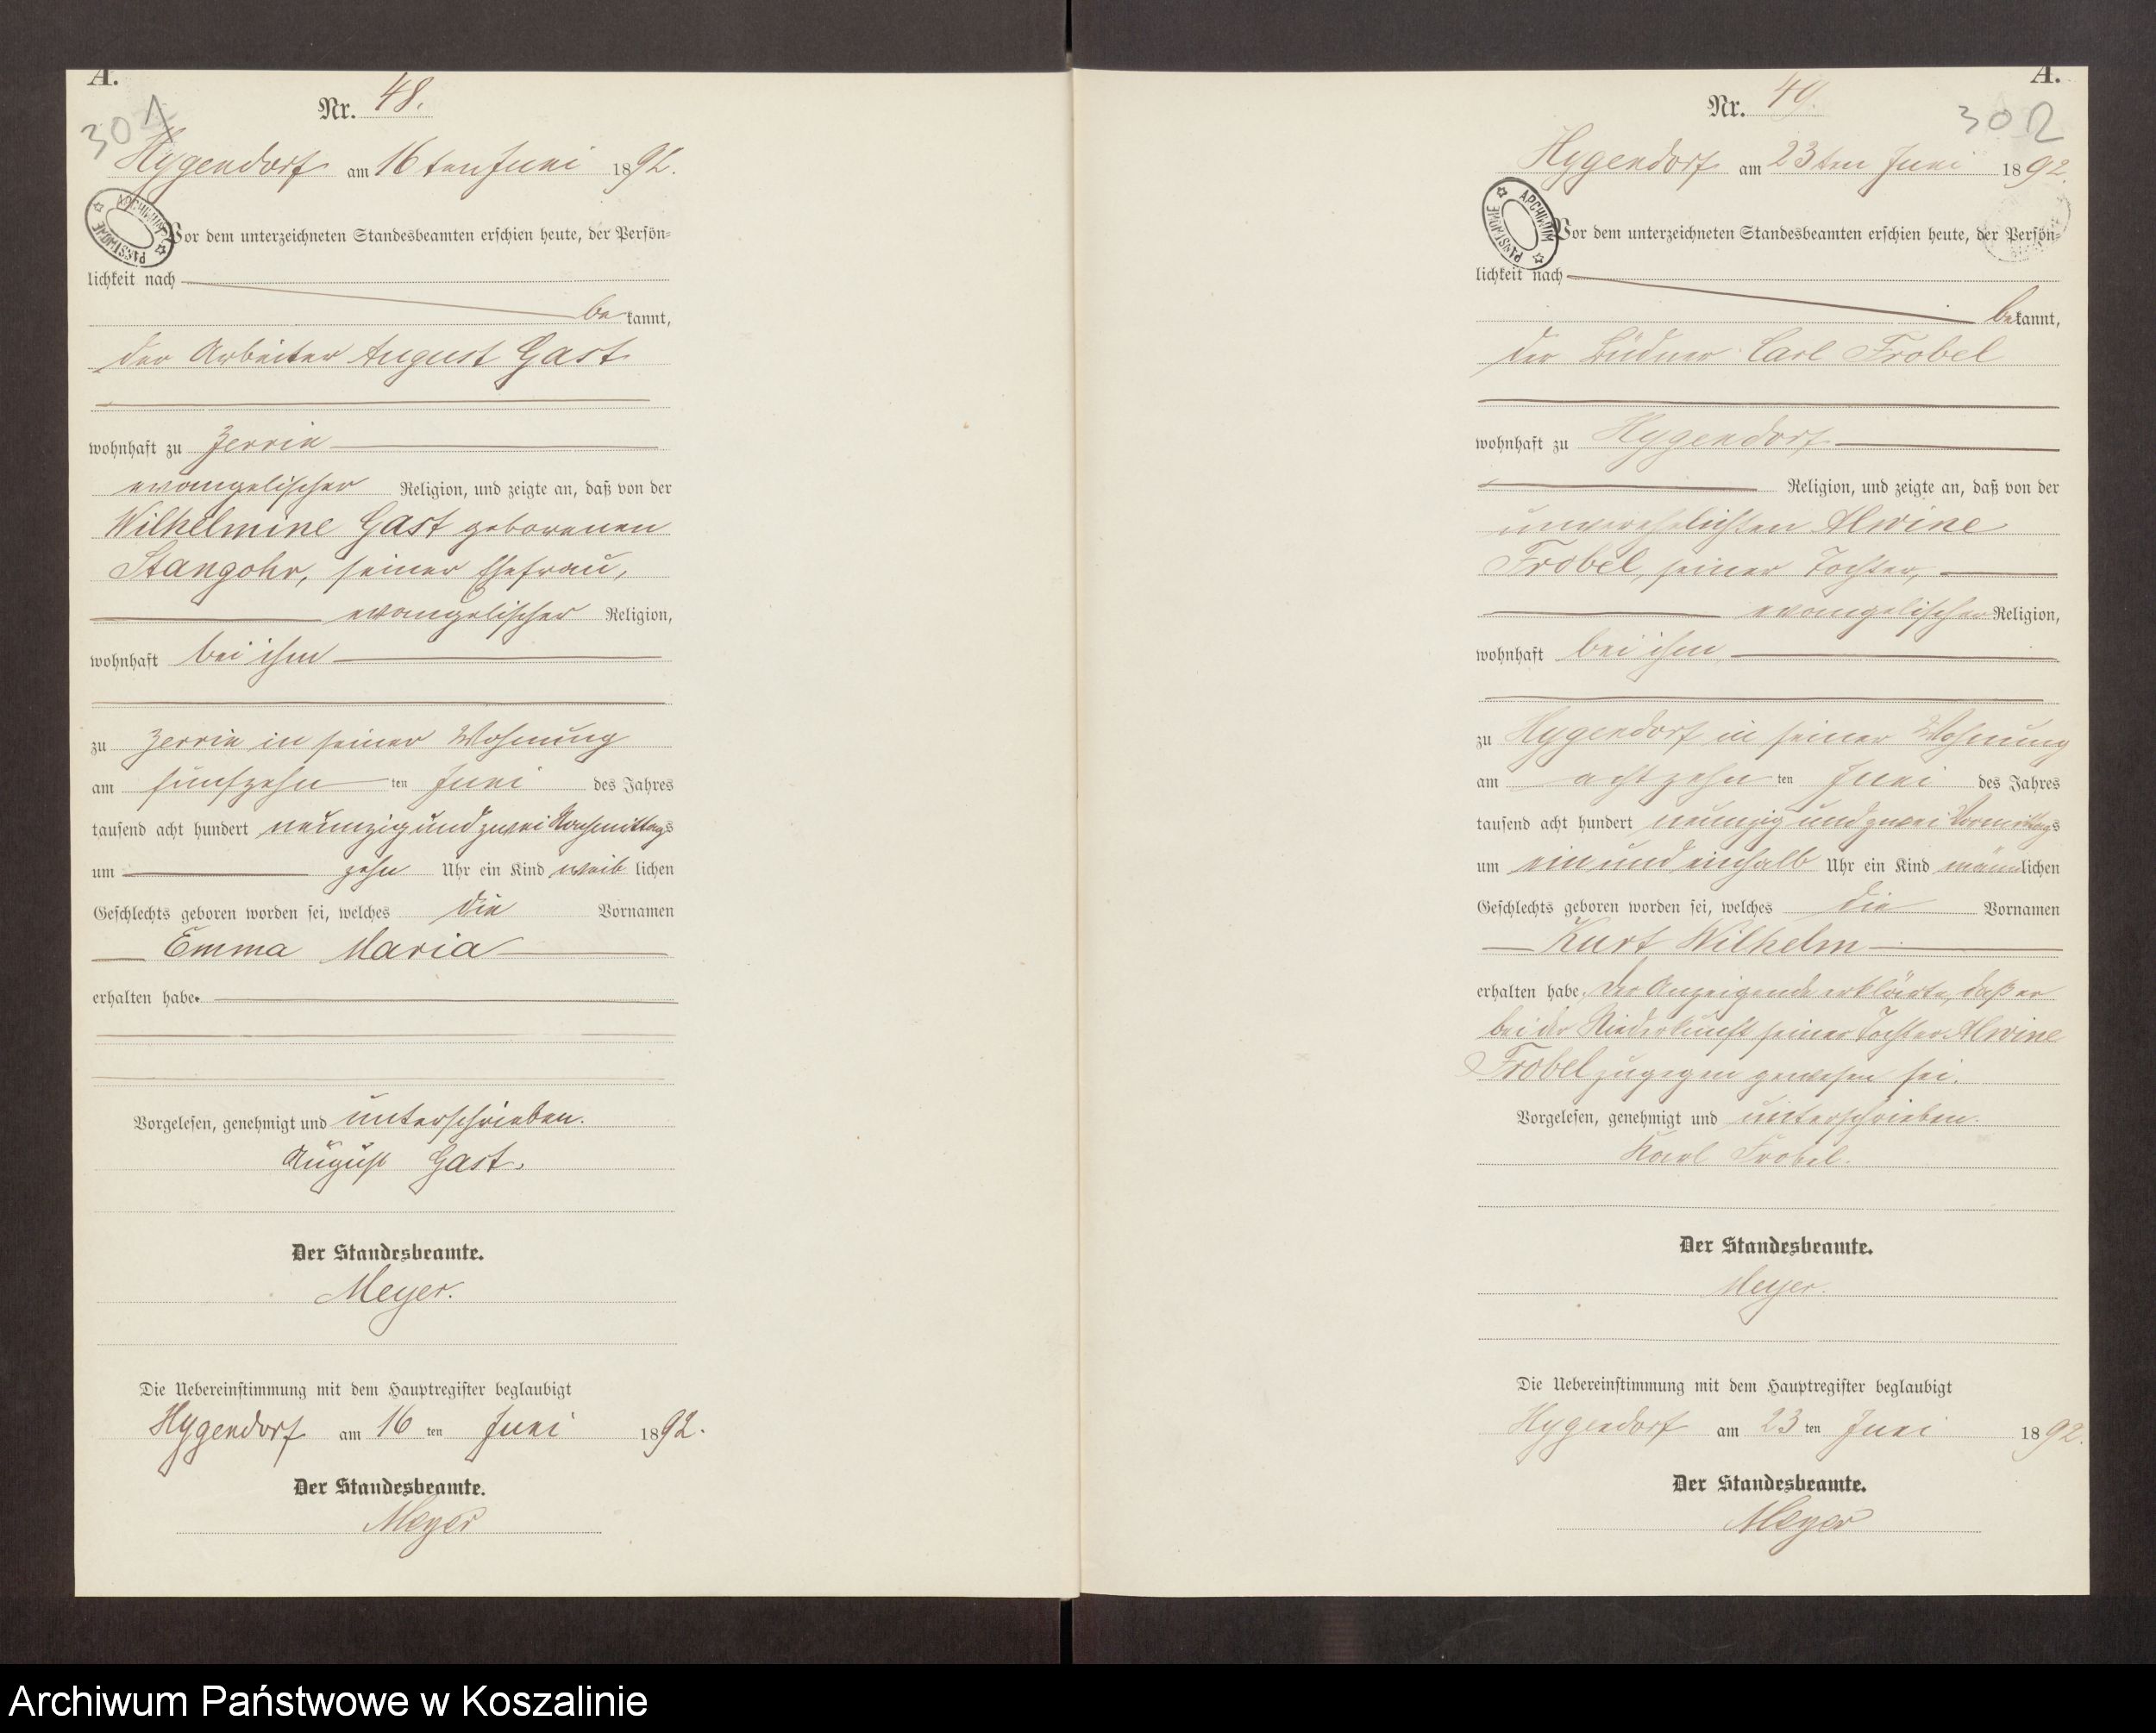 A.
301
Nr. 48.
Hygendorf am 16ten Juni 1892.
ARCHIWUM PAŃSTWOWE
Vor dem unterzeichneten Standesbeamten erschien heute, der Persön-
lichkeit nach
bekannt,
der Arbeiter August Gast
wohnhaft zu Zerrin
evangelischer Religion, und zeigte an, daß von der
Wilhelmine Gast geborenen
Stangohr, seiner Ehefrau,
evangelischer Religion,
wohnhaft bei ihm
zu Zerrin in seiner Wohnung
am fünfzehn ten Juni des Jahres
tausend acht hundert neunzig und zwei Nachmittags
um zehn Uhr ein Kind weiblichen
Geschlechts geboren worden sei, welches die Vornamen
Emma Maria
erhalten habe.
Vorgelesen, genehmigt und unterschrieben.
August Gast.
Der Standesbeamte.
Meyer.
Die Uebereinstimmung mit dem Hauptregister beglaubigt
Hygendorf am 16 ten Juni 1892.
Der Standesbeamte.
Meyer
A.
302
Nr. 49.
Hygendorf am 23ten Juni 1892.
ARCHIWUM PAŃSTWOWE
Vor dem unterzeichneten Standesbeamten erschien heute, der Persön-
lichkeit nach
bekannt,
der Büdner Carl Frobel
wohnhaft zu Hygendorf
Religion, und zeigte an, daß von der
unverehelichten Alwine
Frobel, seiner Tochter,
evangelischer Religion,
wohnhaft bei ihm
zu Hygendorf in seiner Wohnung
am achtzehn ten Juni des Jahres
tausend acht hundert neunzig und zwei Vormittags
um ein und einhalb Uhr ein Kind männlichen
Geschlechts geboren worden sei, welches die Vornamen
Kurt Wilhelm
erhalten habe. Der Anzeigende erklärte, daß er
bei der Niederkunft seiner Tochter Alwine
Frobel zugegen gewesen sei.
Vorgelesen, genehmigt und unterschrieben.
Karl Frobel.
Der Standesbeamte.
Meyer.
Die Uebereinstimmung mit dem Hauptregister beglaubigt
Hygendorf am 23 ten Juni 1892.
Der Standesbeamte.
Meyer
Archiwum Państwowe w Koszalinie